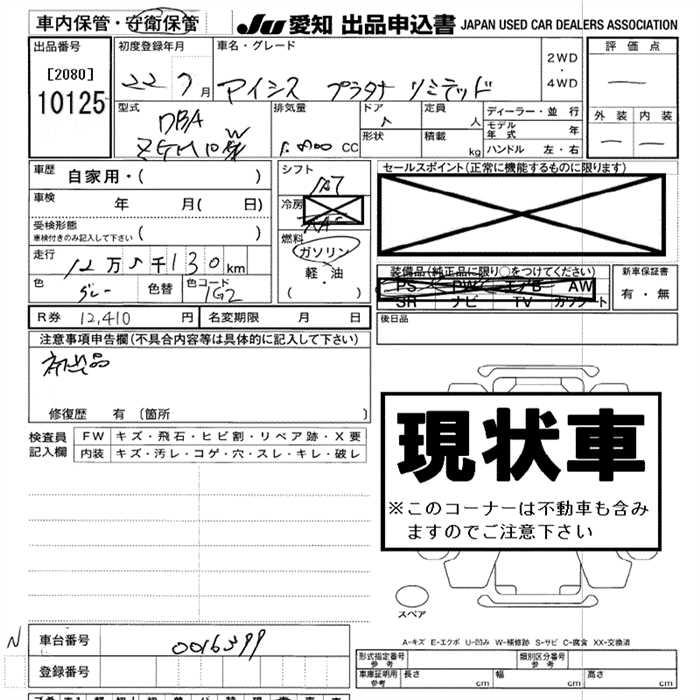 車内保管・守衛保管
JU 愛知 出品申込書 JAPAN USED CAR DEALERS ASSOCIATION
出品番号
[2080]
10125
初度登録年月
22 7月
車名・グレード
アイシス プラタナ リミテッド
2WD
・
4WD
評価点
外装 内装
型式
DBA
排気量
1.800 CC
ドア
人
形状
定員
人
積載
kg
ディーラー・並行
モデル年式 年
ハンドル 左・右
車歴 自家用・( )
車検 年 月( 日)
受検形態
車検付きのみ記入して下さい ( )
走行 12万5千130km
色 グレー 色替 色コード 1G2
シフト
IA7
冷房
燃料
ガソリン
軽・油
( )
セールスポイント(正常に機能するものに限ります)
装備品(純正品に限り○をつけてください)
PS PW エアB AW
SR ナビ TV カワシート
新車保証書
有・無
R券 12,410 円 名変期限 月 日
後日品
注意事項申告欄(不具合内容等は具体的に記入して下さい)
修復歴 有 〔箇所 〕
検査員記入欄
FW キズ・飛石・ヒビ割・リペア跡・X要
内装 キズ・汚レ・コゲ・穴・スレ・キレ・破レ
現状車
※このコーナーは不動車も含み
ますのでご注意下さい
スペア
A-キズ E-エクボ U-凹み W-補修跡 S-サビ C-腐食 XX-交換済
N 車台番号 0016399
登録番号
形式指定番号
参考
類別区分番号
参考
車庫証明用
参考
長さ cm 幅 cm 高さ cm